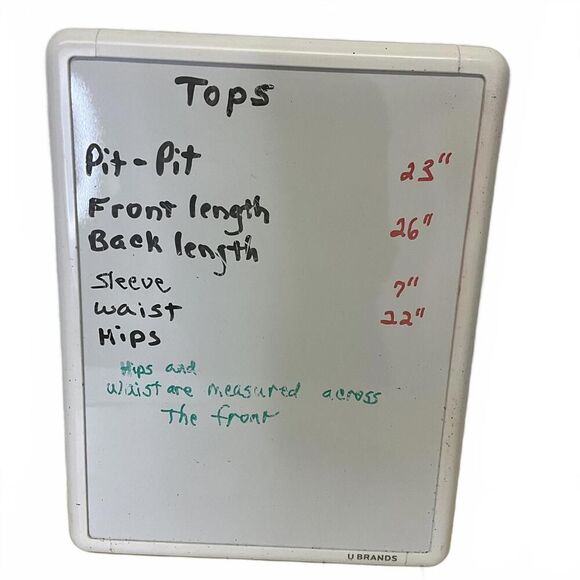 Tops
Pit-Pit 23"
Front length 26"
Back length
Sleeve 7"
waist 22"
Hips
Hips and
waist are measured across
The front
U BRANDS